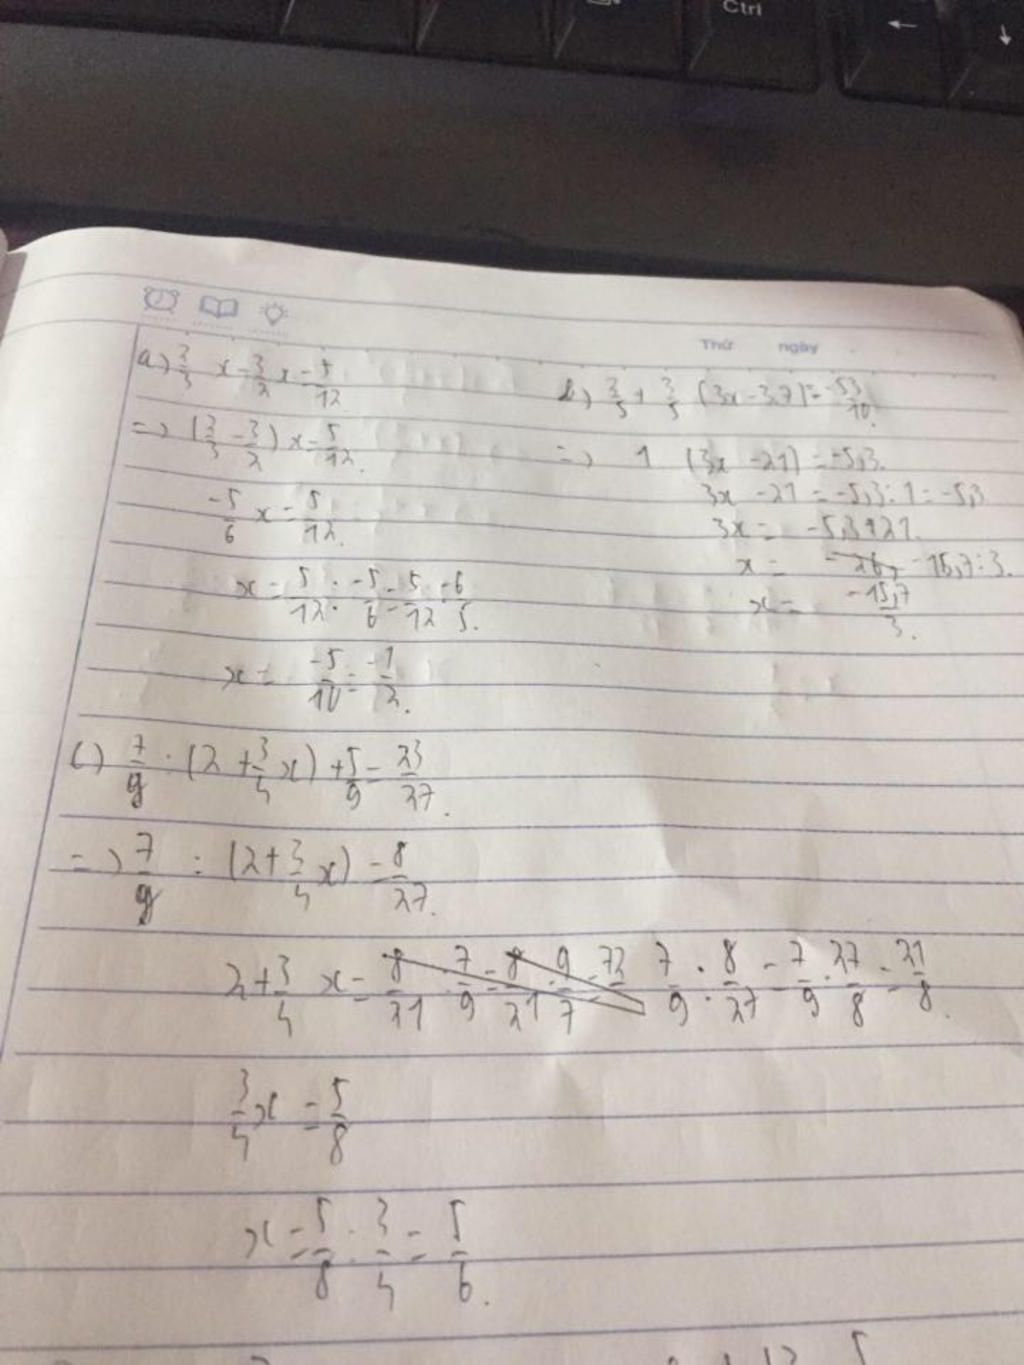 Ctrl
← ↓
Thứ ngày
a) 2/3 x - 3/2 x = 5/12
=> (2/3 - 3/2) x = 5/12.
-5/6 x = 5/12.
x = 5/12 : -5/6 = 5/12 . -6/5.
x = -5/10 = -1/2.
b) 2/5 + 3/5 (3x - 3,7) = -53/10.
=> 1 (3x - 21) = -5,3.
3x - 21 = -5,3 : 1 = -5,3
3x = -5,3 + 21.
x = -15,7 : 3.
x = -15,7/3.
c) 7/9 : (2 + 3/4 x) + 5/9 = 23/27.
=> 7/9 : (2 + 3/4 x) = 8/27.
2 + 3/4 x = 7/9 : 8/27 = 7/9 . 27/8 = 21/8.
3/4 x = 5/8
x = 5/8 : 3/4 = 5/6.